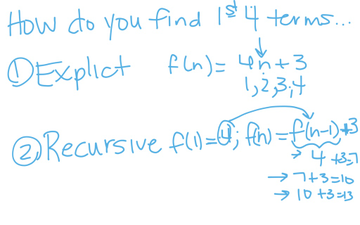 How do you find 1st 4 terms...
① Explict f(n) = 4n + 3
1, 2, 3, 4
② Recursive f(1) = 4; f(n) = f(n-1) + 3
→ 4 + 3 = 7
→ 7 + 3 = 10
→ 10 + 3 = 13